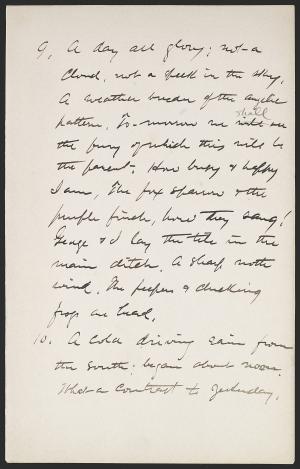 9. A day all glory; not a
cloud, not a speck in the sky,
A weather breeder of the angelic
pattern. To-morrow we will see
shall
the fury of which this will be
the parent. How busy & happy
I am, The fox sparrow & the
purple finch, how they sang!
George & I lay the tile in the
main ditch. A sharp north
wind. The peepers & clucking
frogs are heard.
10. A cold driving rain from
the south; began about noon.
What a contrast to yesterday.